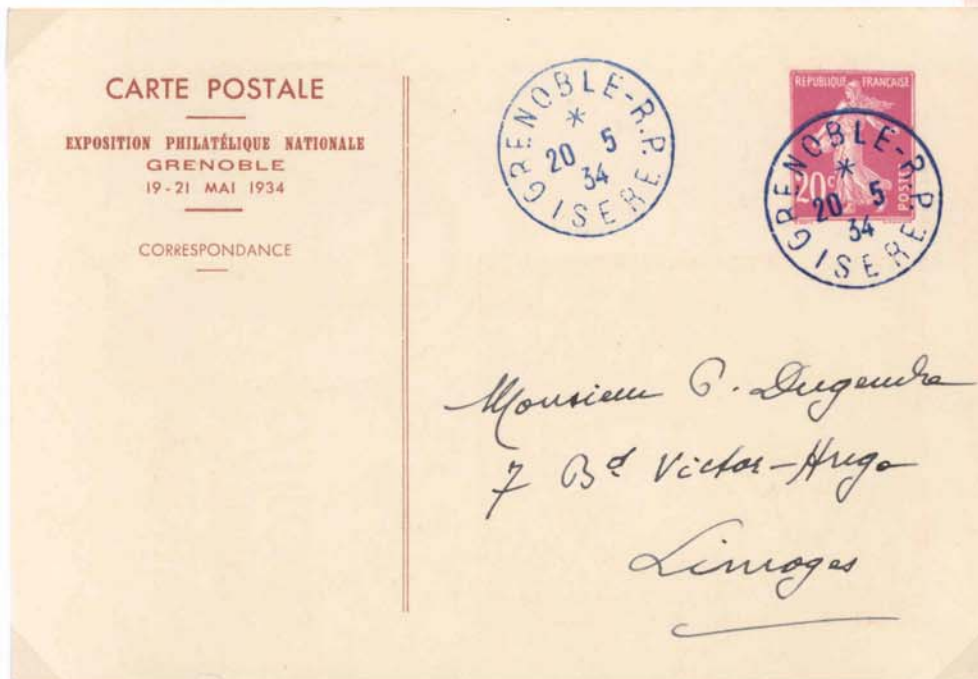 CARTE POSTALE
EXPOSITION PHILATÉLIQUE NATIONALE
GRENOBLE
19-21 MAI 1934
CORRESPONDANCE
GRENOBLE-R.P.
*
20 5
34
ISERE
REPUBLIQUE FRANÇAISE
20c
POSTES
GRENOBLE-R.P.
*
20 5
34
ISERE
Monsieur
7 Bd Victor-Hugo
Limoges